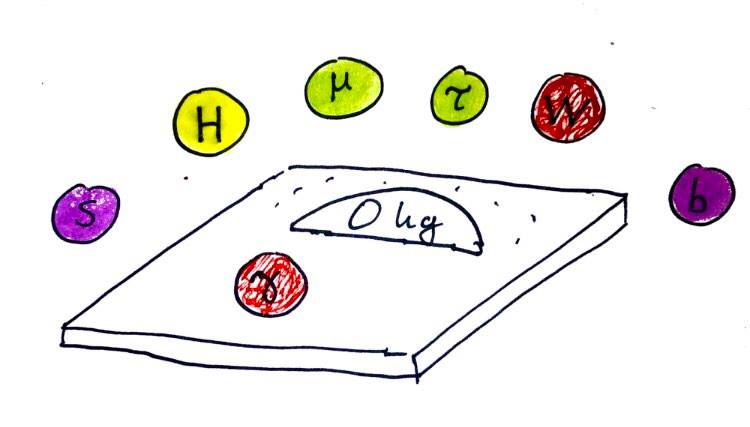 H
μ
τ
W
s
b
0 kg
γ